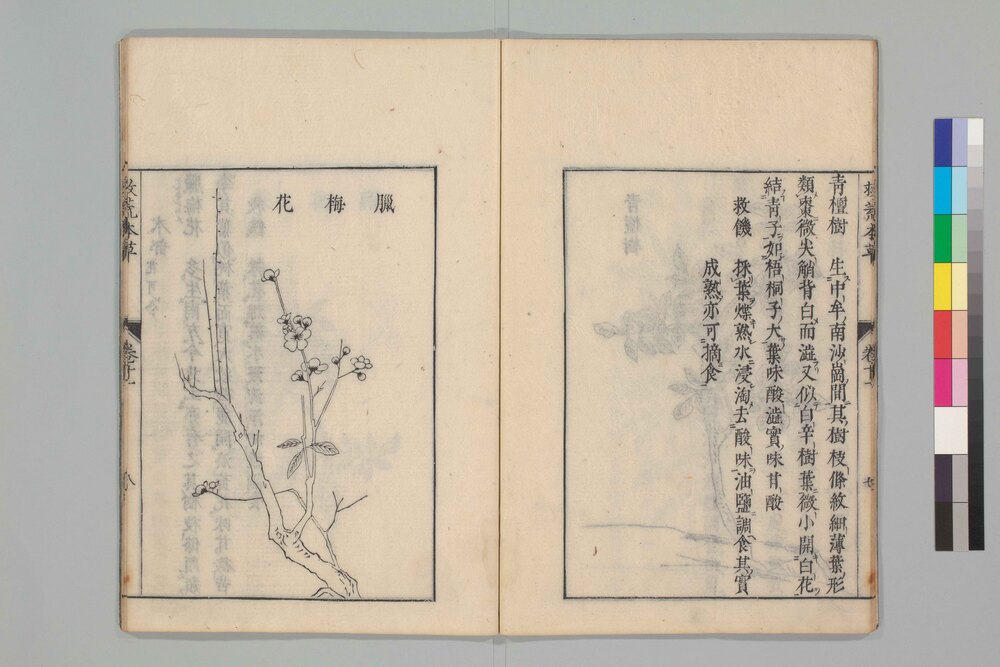 青檀樹 生中牟南沙崗間其樹枝條紋細薄葉形
類棗微尖𦧇背白而澁又似白辛樹葉微小開白花
結青子如梧桐子大葉味酸澁實味甘酸
救饑 採葉煠熟水浸淘去酸味油鹽調食其實
成熟亦可摘食
救荒本草
臘梅花
救荒本草